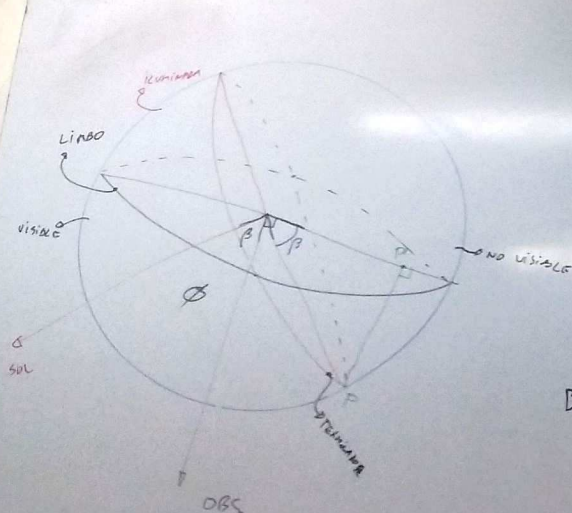 ILUMINADA
LIMBO
VISIBLE
NO VISIBLE
β
β
P'
Ø
SOL
P
TERMINADOR
OBS